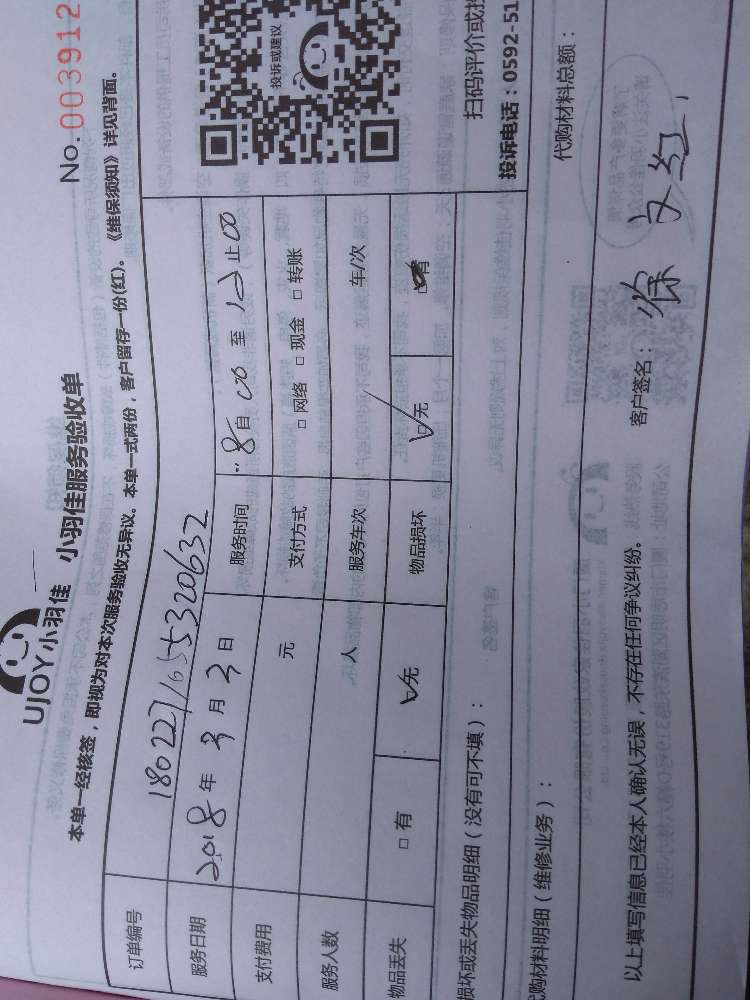 UJOY小羽佳 小羽佳服务验收单
No. 003912
本单一经核签，即视为对本次服务验收无异议。本单一式两份，客户留存一份(红)。《维保须知》详见背面。
订单编号 1802271655320632
服务日期 2018年3月3日 服务时间 8自00至12止00
支付费用 元 支付方式 □网络 □现金 □转账
服务人数 人 服务车次 车/次
物品丢失 □有 ☑无 物品损坏 ☑无 □有
投诉或建议
扫码评价或投
投诉电话：0592-51
损坏或丢失物品明细（没有可不填）：
代购材料明细（维修业务）： 代购材料总额：
以上填写信息已经本人确认无误，不存在任何争议纠纷。 客户签名：徐文红